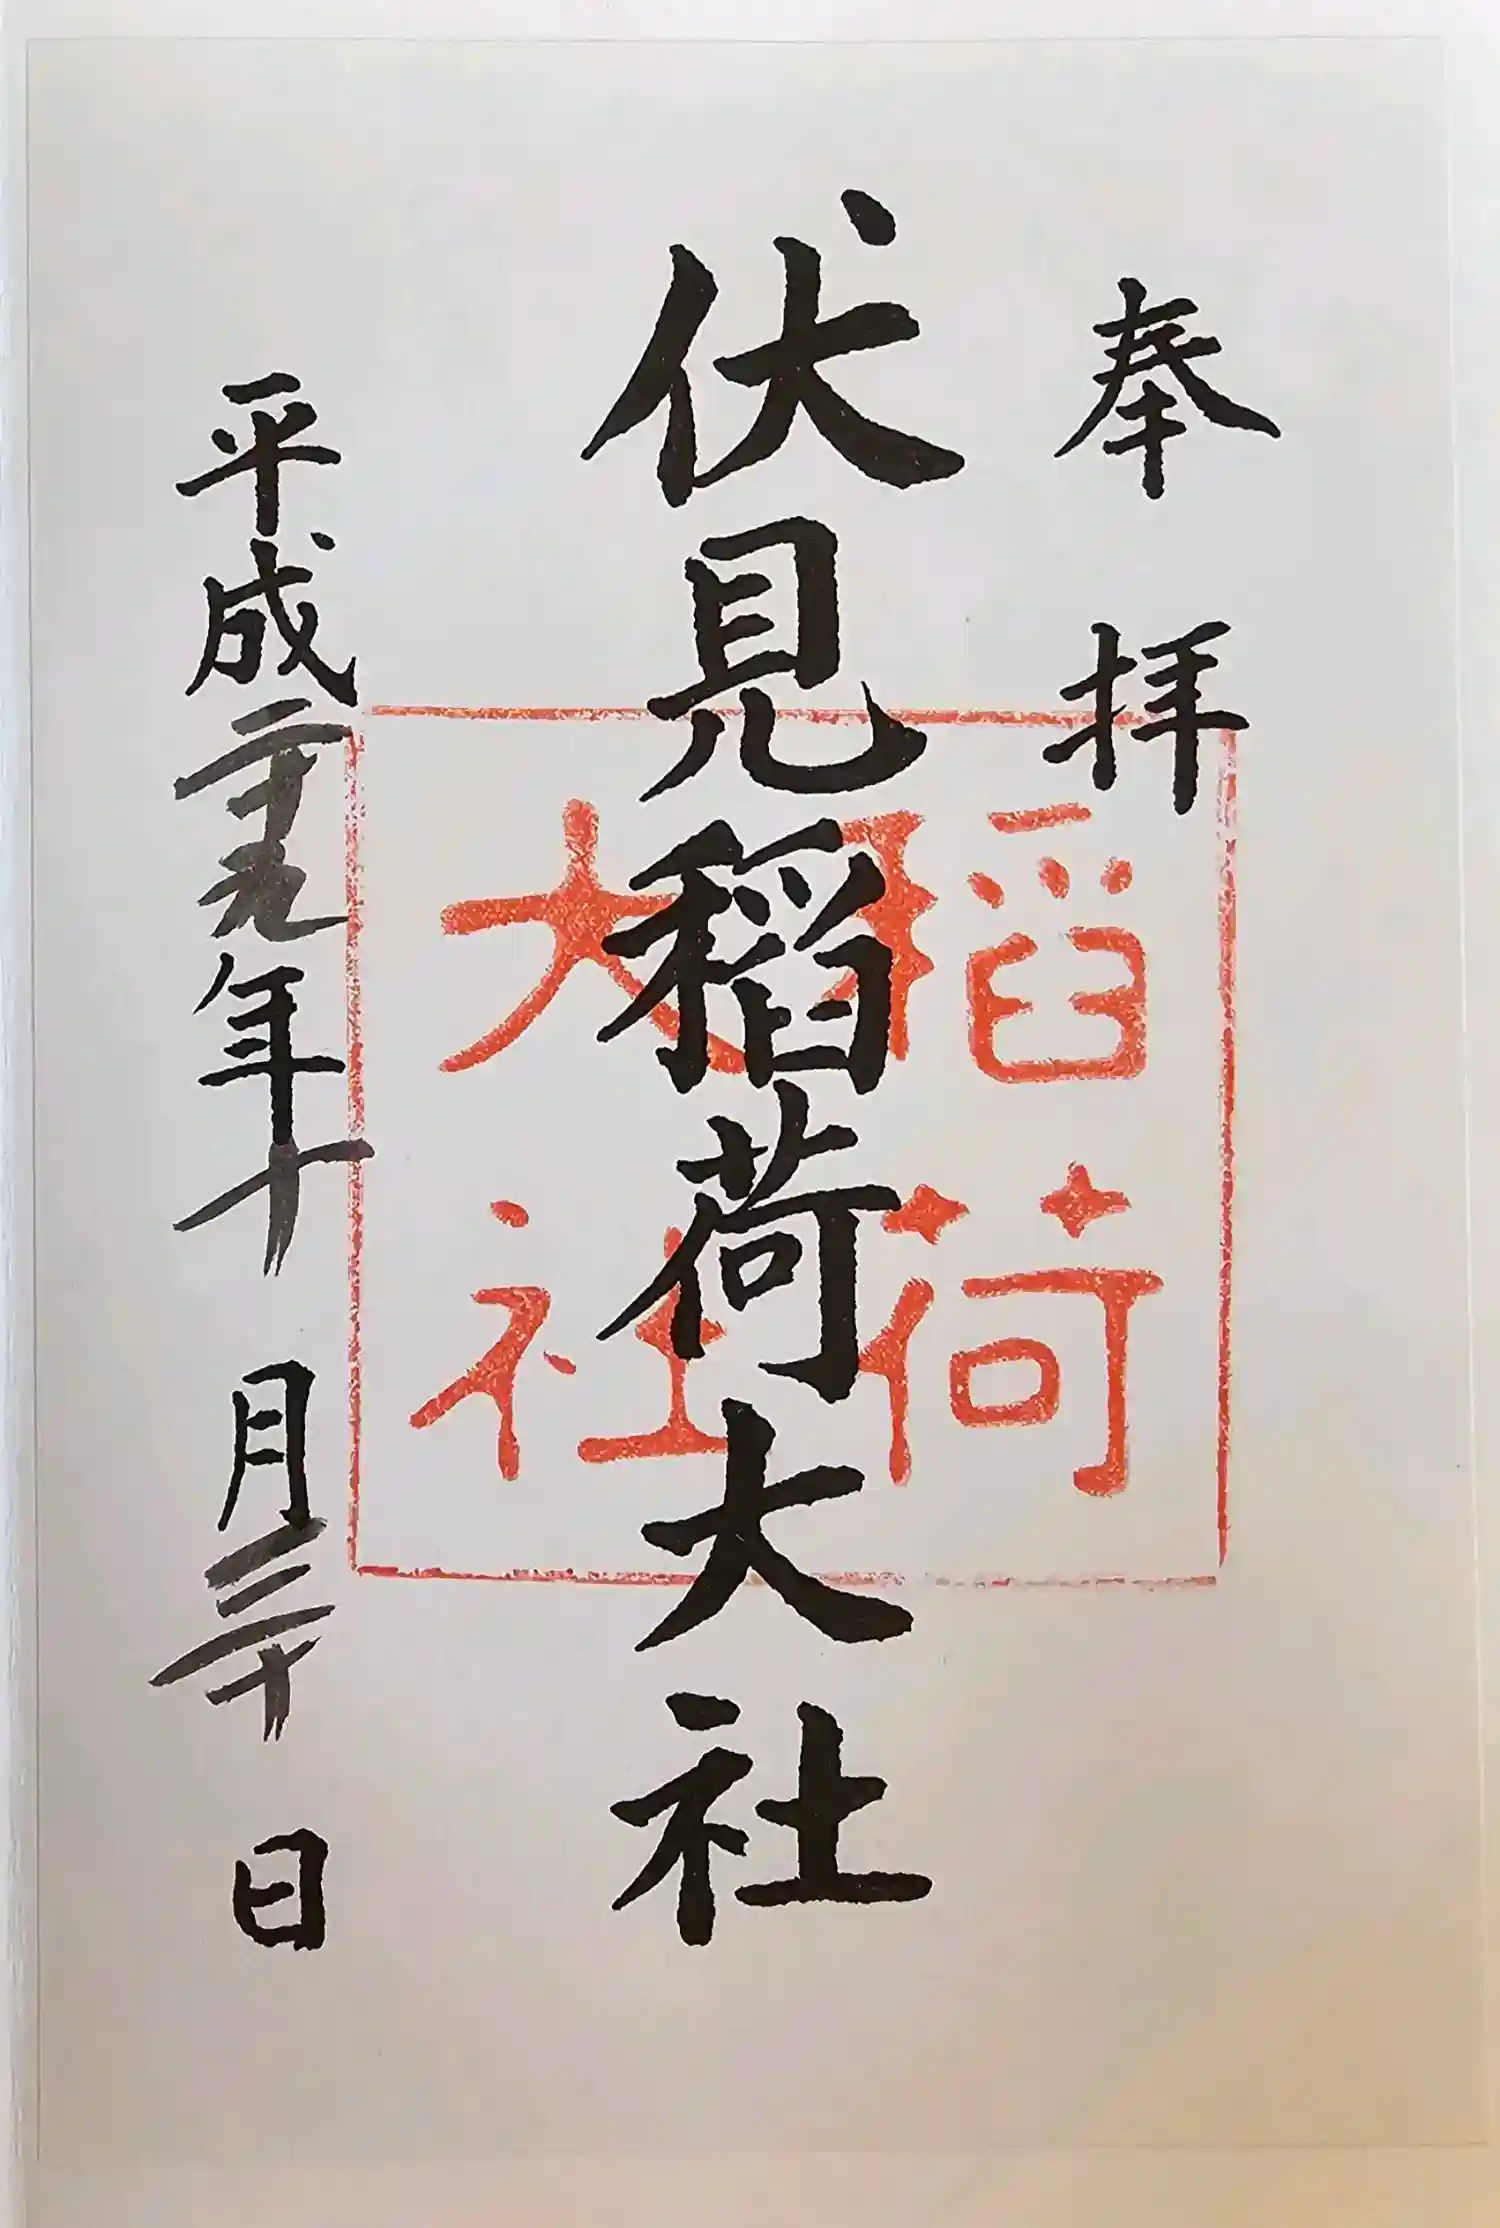 奉拝
伏見稲荷大社
平成二十九年十月三十日
稲荷
大社